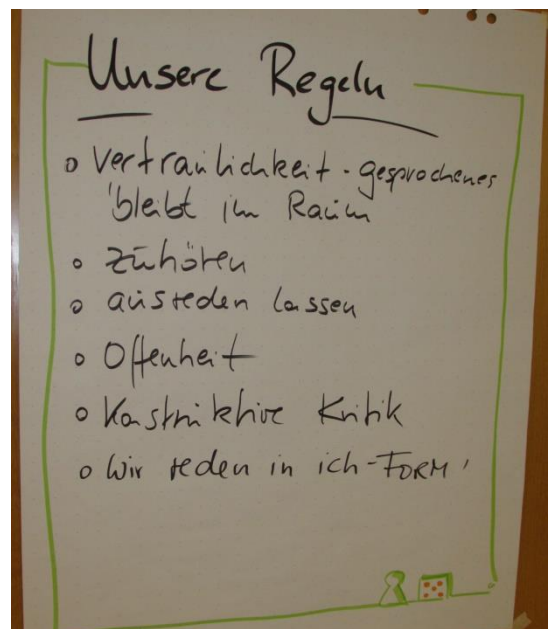 Unsere Regeln
o Vertraulichkeit - gesprochenes
bleibt im Raum
o Zuhören
o ausreden lassen
o Offenheit
o Konstruktive Kritik
o Wir reden in ich-FORM